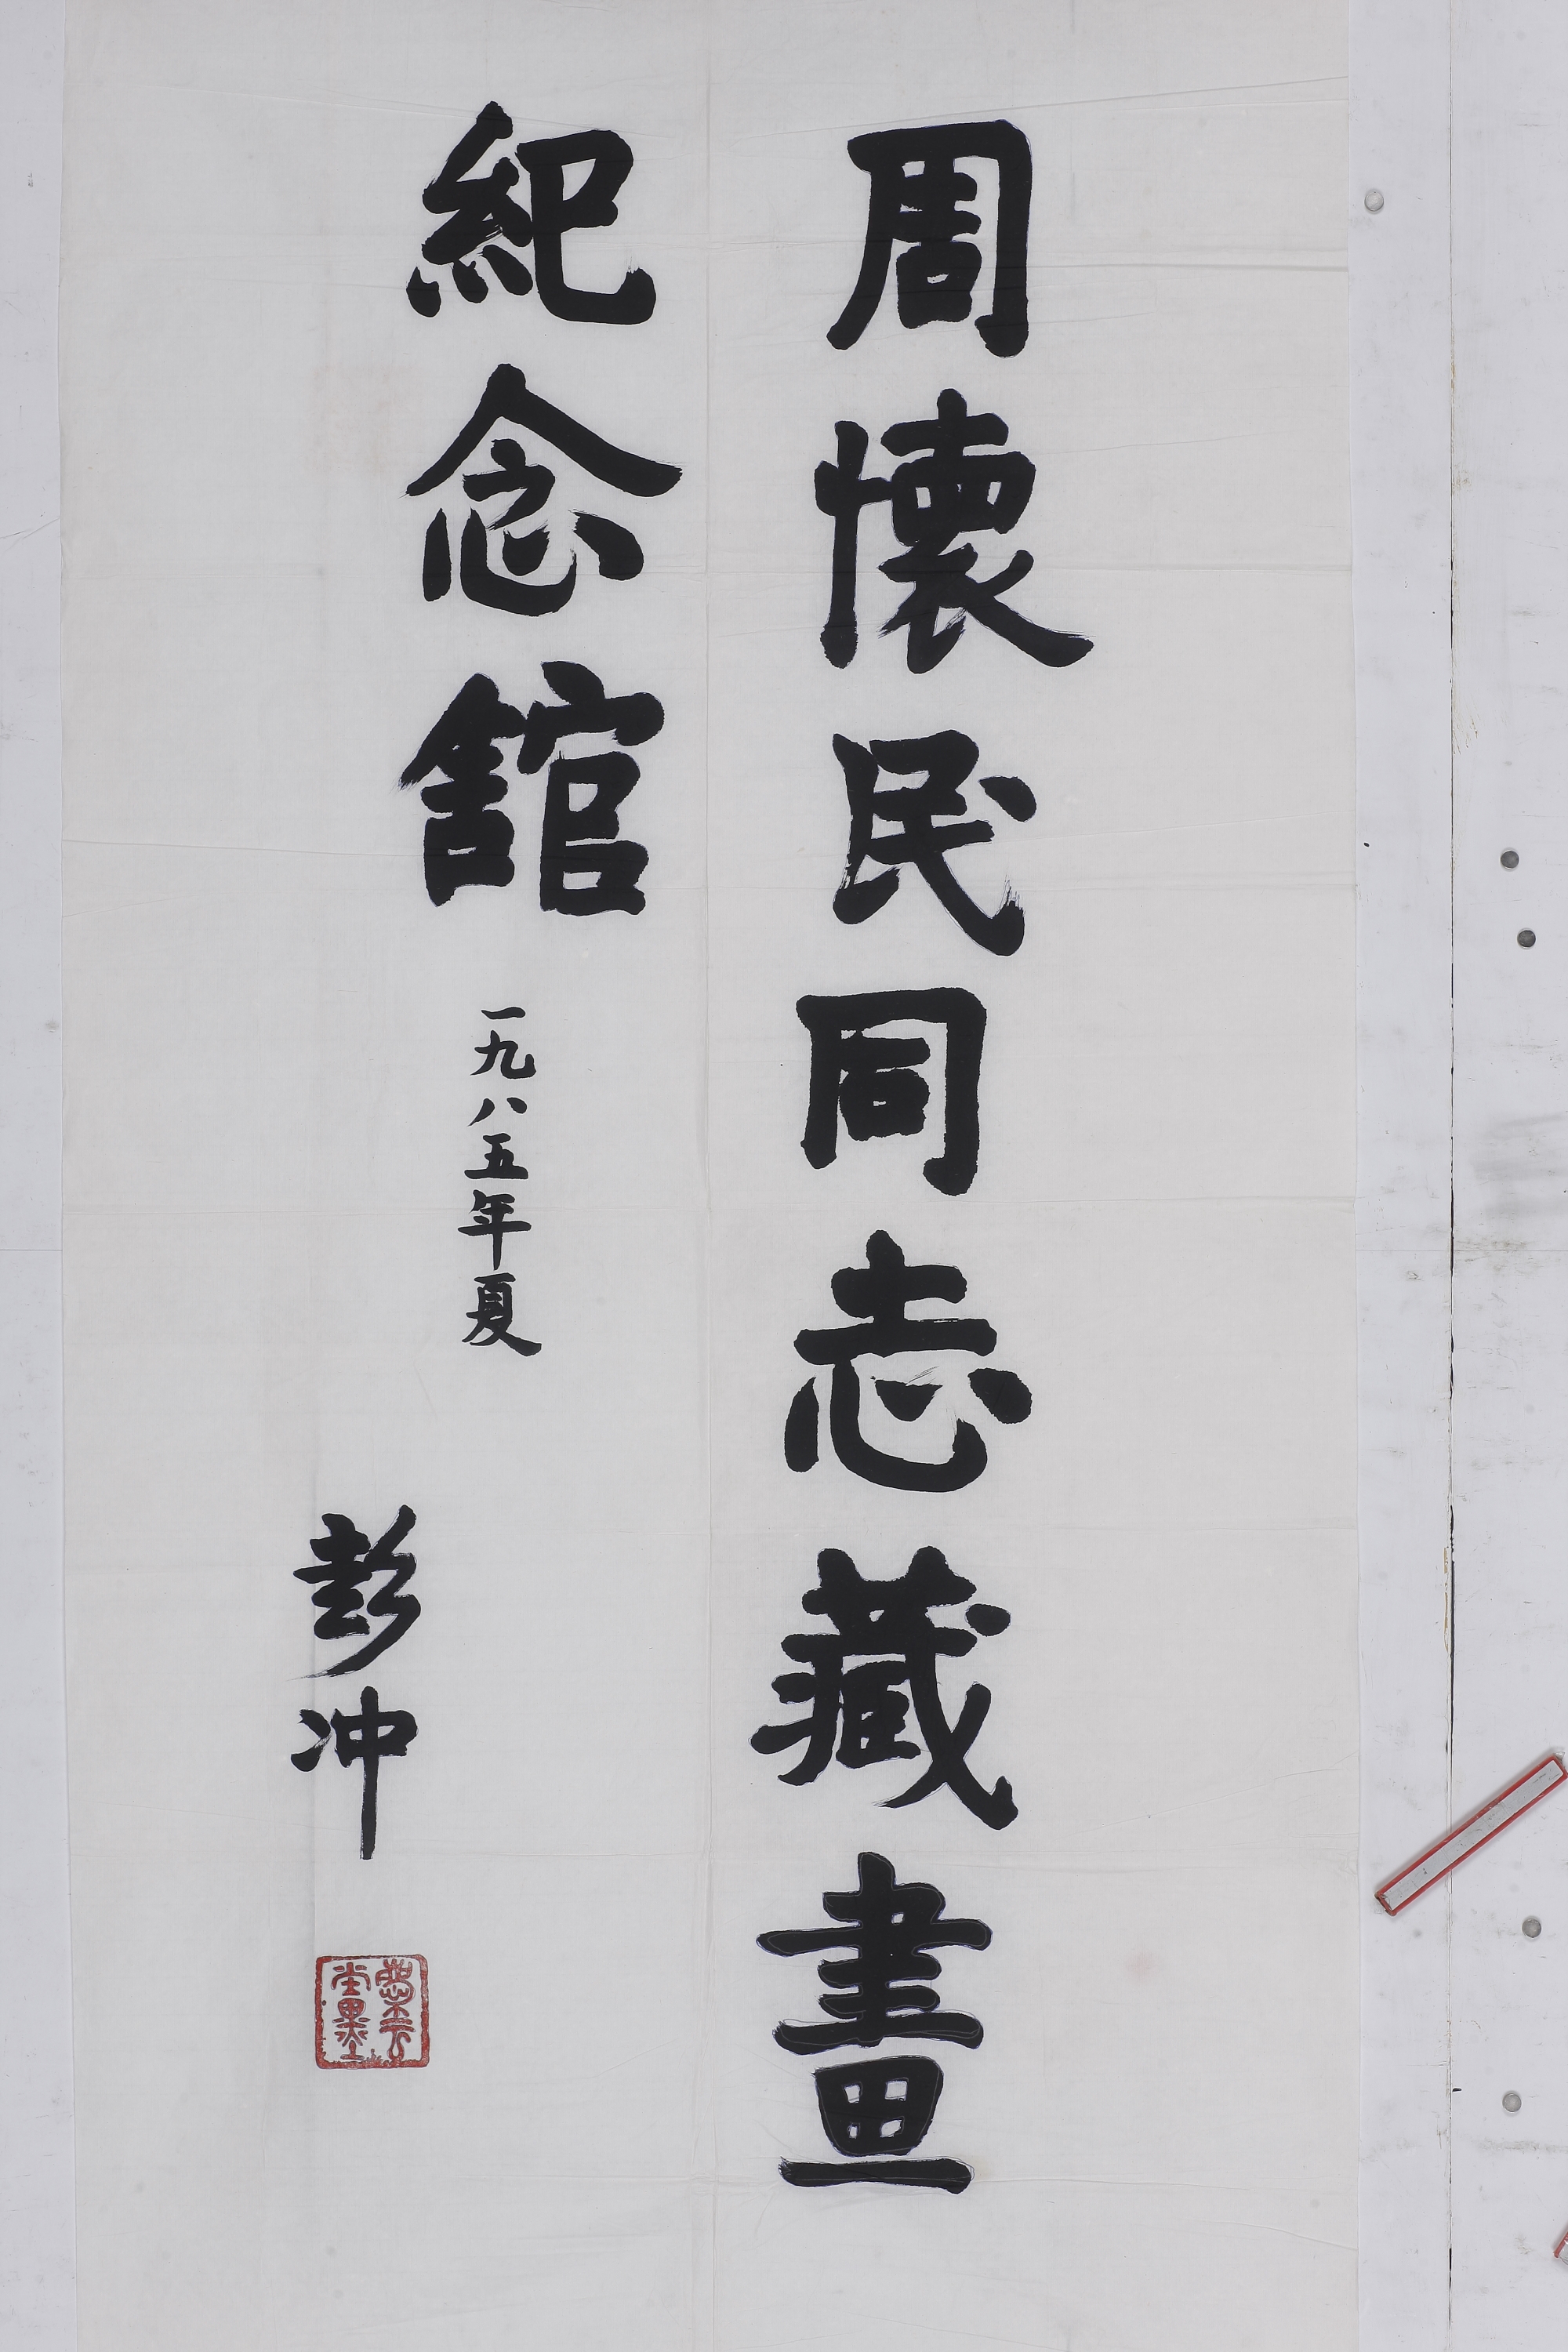 周懷民同志藏畫
紀念舘 一九八五年夏
彭冲